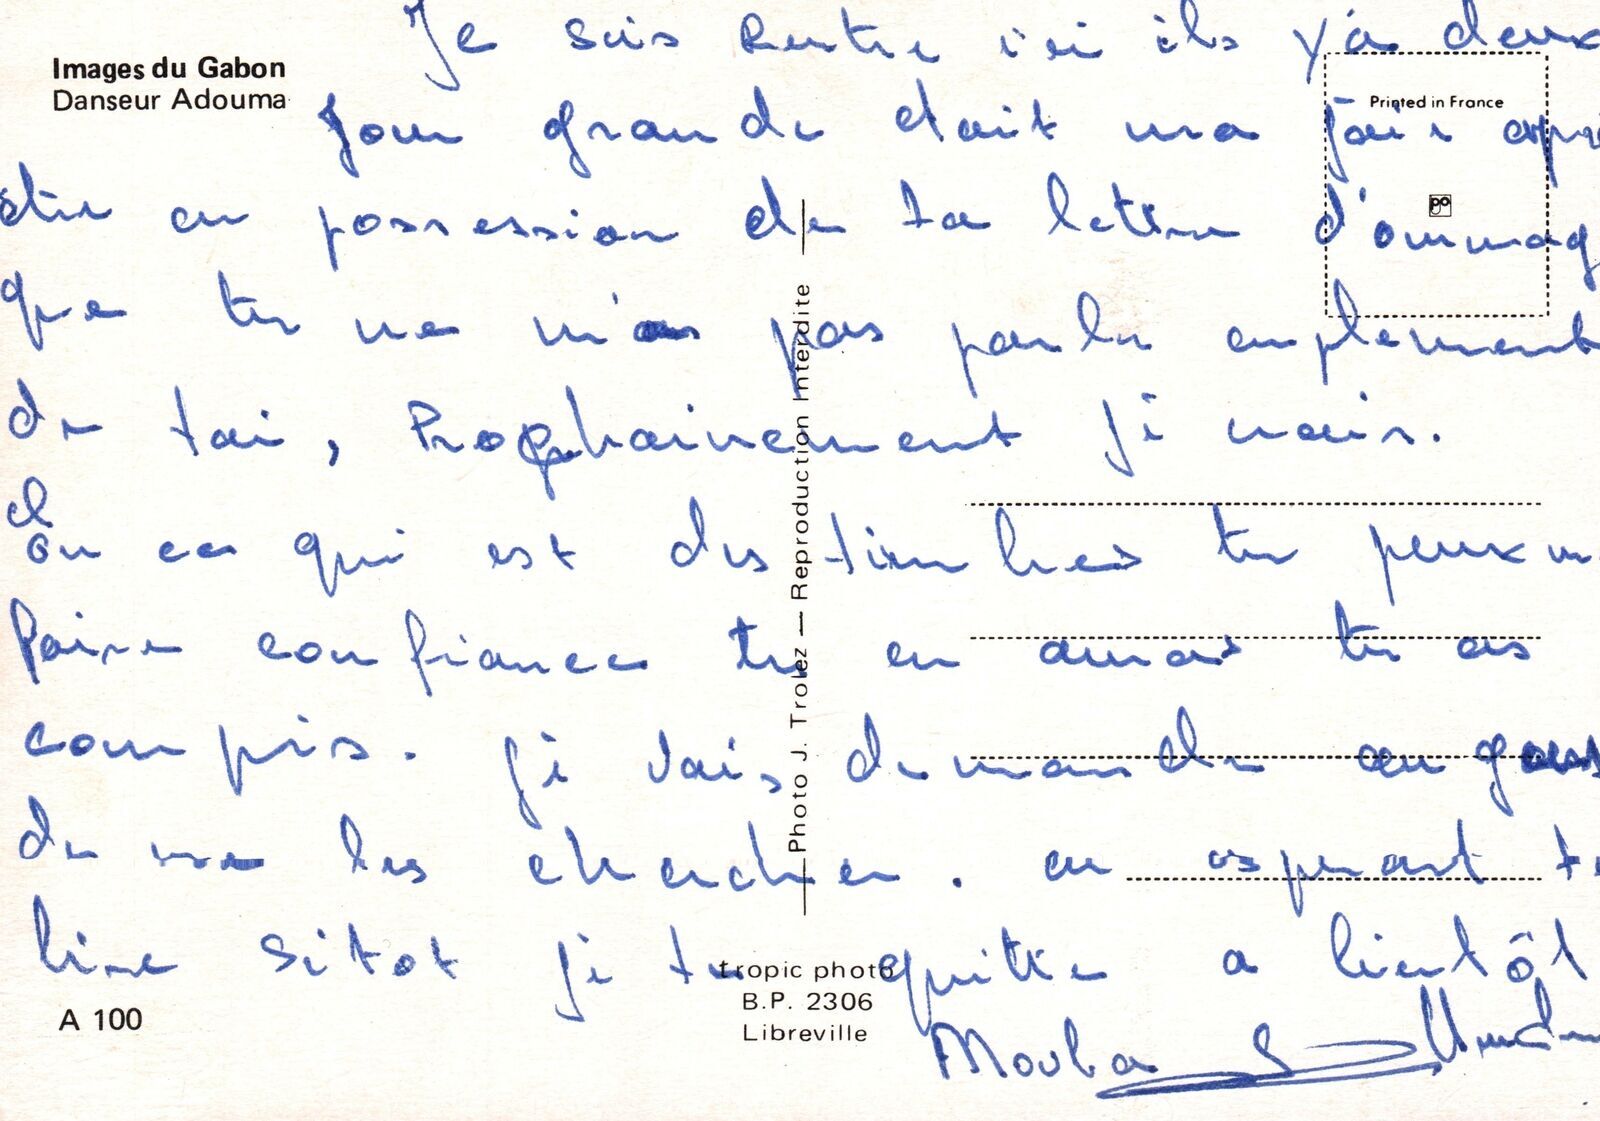 Je suis Rentre ici ils y'a deux
Images du Gabon
Danseur Adouma
Printed in France
Jour grande etait ma joie
être en possession de ta lettre d'ommag
que tu ne m'as pas parlu emplement
de toi, Prophainement je
Ou ce qui est des timbres tu peux m
Faire confiance tu en auras tu as
compris. je vais demande au
de me les chercher. en esperant te
lire sitot je te quitte a bientôt
Photo J. Trolez — Reproduction Interdite
A 100
tropic photo
B.P. 2306
Libreville
Mouba